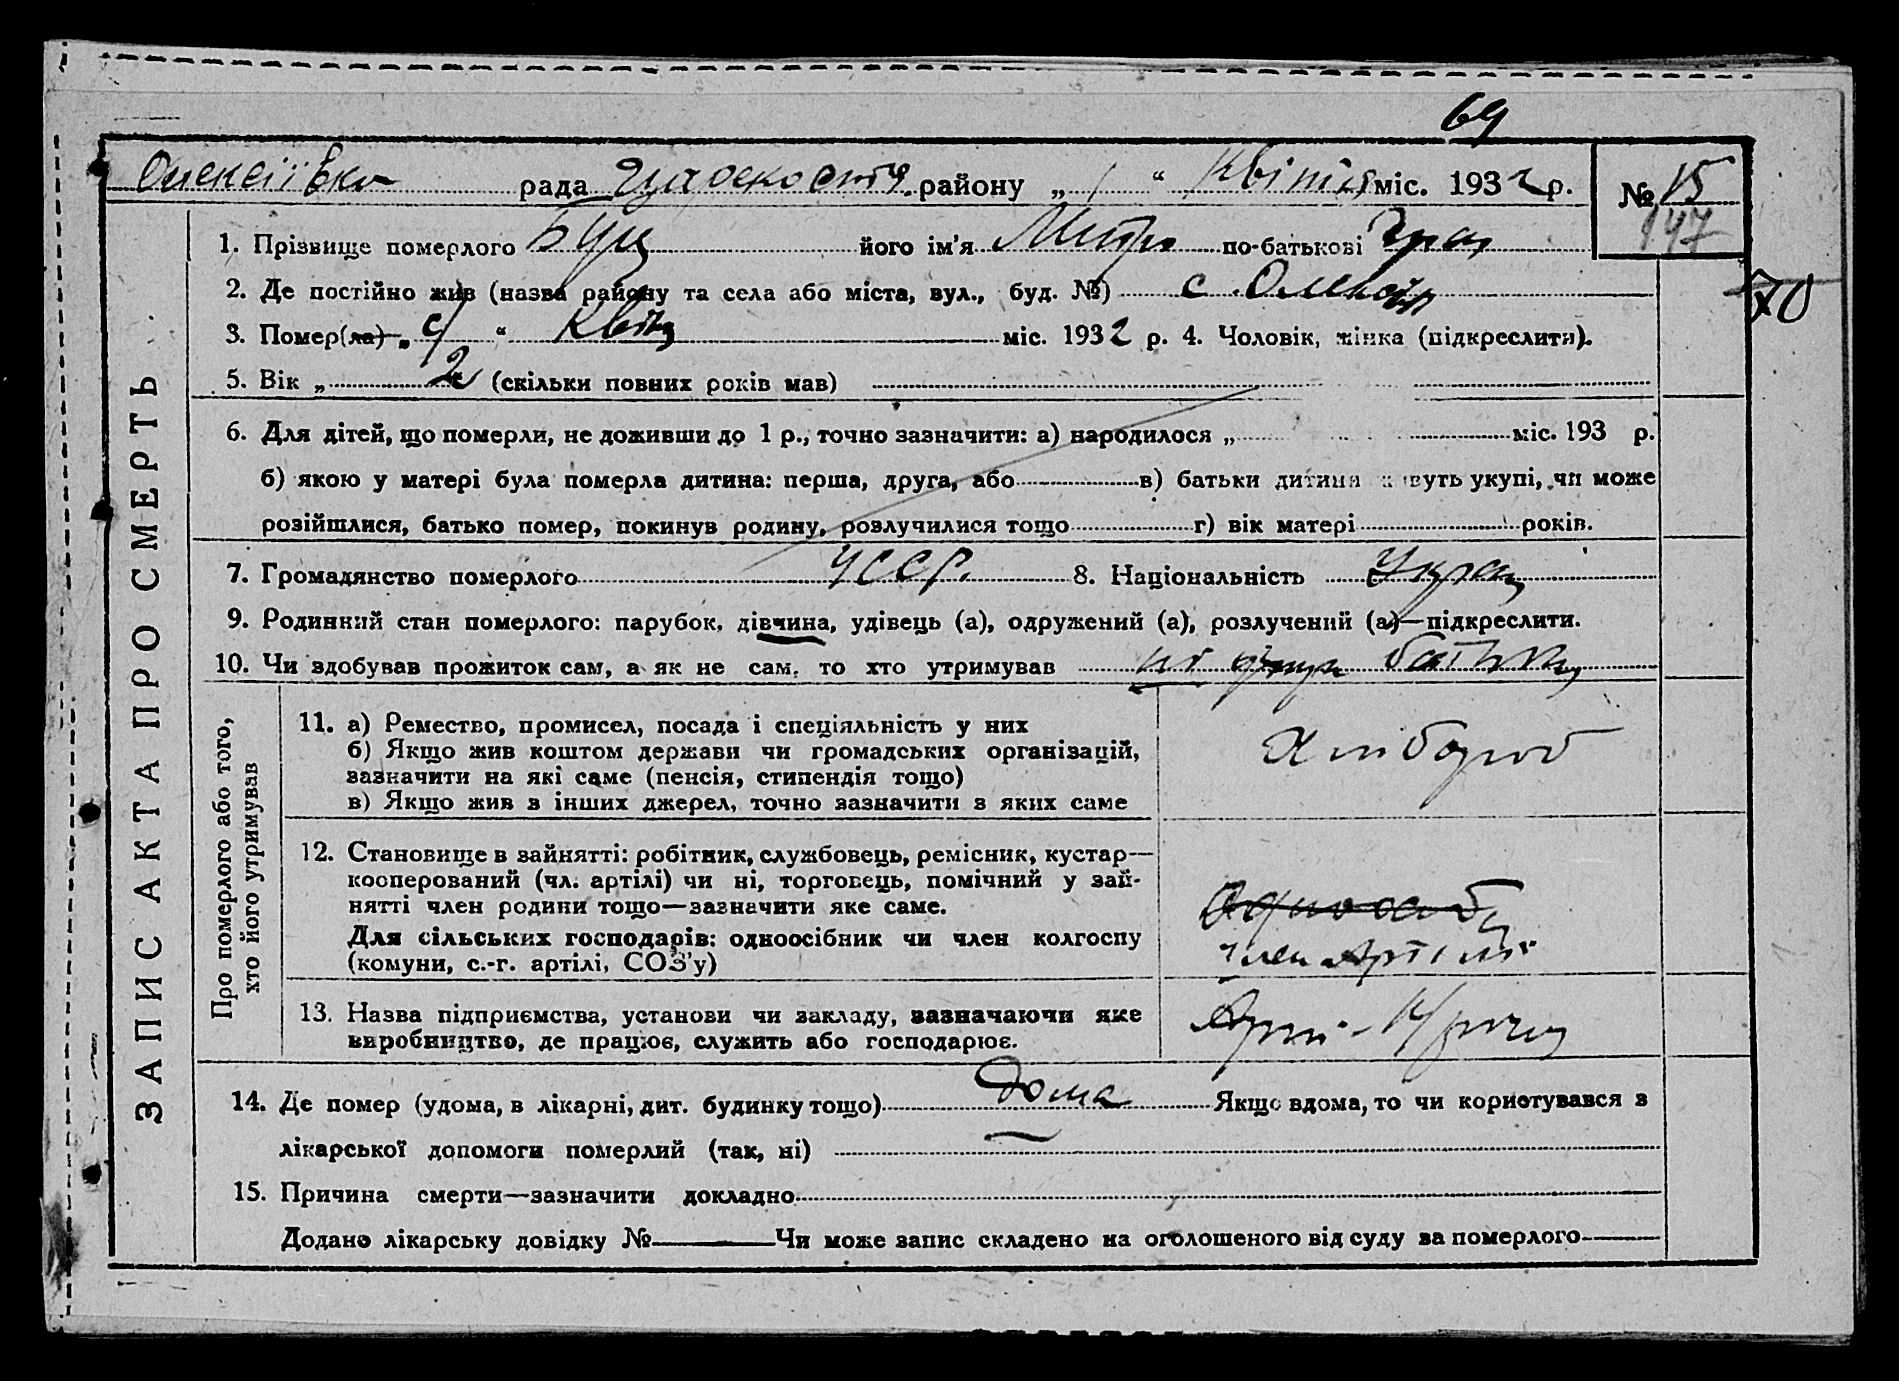 69
Олексіївка рада району „ 1 “ Квітня міс. 1932 р. № 15
147
1. Прізвище померлого Буц його ім’я Митро по-батькові
2. Де постійно жив (назва району та села або міста, вул., буд. №) с.
3. Помер(ла) „ “ Квіт міс. 1932 р. 4. Чоловік, жінка (підкреслити).
5. Вік „ 2 “ (скільки повних років мав)
6. Для дітей, що померли, не доживши до 1 р., точно зазначити: а) народилося „ міс. 193 р.
б) якою у матері була померла дитина: перша, друга, або в) батьки дитини живуть укупі, чи може
розійшлися, батько помер, покинув родину, розлучилися тощо г) вік матері років.
7. Громадянство померлого УССР. 8. Національність Укра
9. Родинний стан померлого: парубок, дівчина, удівець (а), одружений (а), розлучений (а)—підкреслити.
10. Чи здобував прожиток сам, а як не сам, то хто утримував
ЗАПИС АКТА ПРО СМЕРТЬ
Про померлого або того,
хто його утримував
11. а) Ремество, промисел, посада і спеціяльність у них
б) Якщо жив коштом держави чи громадських організацій,
зазначити на які саме (пенсія, стипендія тощо)
в) Якщо жив з інших джерел, точно зазначити з яких саме
Хлібороб
12. Становище в зайнятті: робітник, службовець, ремісник, кустар—
кооперований (чл. артілі) чи ні, торговець, помічний у зай-
нятті член родини тощо—зазначити яке саме.
Для сільських господарів: одноосібник чи член колгоспу
(комуни, с.-г. артілі, СОЗ’у)
Одноосіб
член Артілі
13. Назва підприємства, установи чи закладу, зазначаючи яке
виробництво, де працює, служить або господарює.
14. Де помер (удома, в лікарні, дит. будинку тощо) дома Якщо вдома, то чи користувався з
лікарської допомоги померлий (так, ні)
15. Причина смерти—зазначити докладно
Додано лікарську довідку № Чи може запис складено на оголошеного від суду за померлого